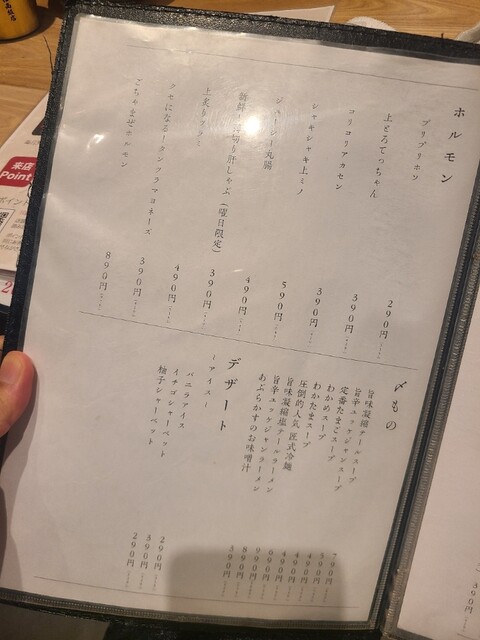 ホルモン
プリプリホソ 290円
上とろてっちゃん 390円
コリコリアカセン 390円
シャキシャキ上ミノ 590円
ジューシー丸腸 490円
新鮮！厚切り肝しゃぶ（曜日限定） 390円
上炙りウルミ 490円
クセになる！タンフラマヨネーズ 390円
ごちゃまぜホルモン 890円
〆もの
旨味凝縮テールスープ 790円
旨辛ユッケジャンスープ 590円
定番たまごスープ
わかめスープ 490円
わかたまスープ 490円
圧倒的人気 匠式冷麺 690円
旨味凝縮塩テールラーメン 990円
旨辛ユッケジャンラーメン 890円
あぶらかすのお味噌汁 390円
デザート
ーアイスー
バニラアイス 290円
イチゴシャーベット 390円
柚子シャーベット 290円
来店
Point
390円